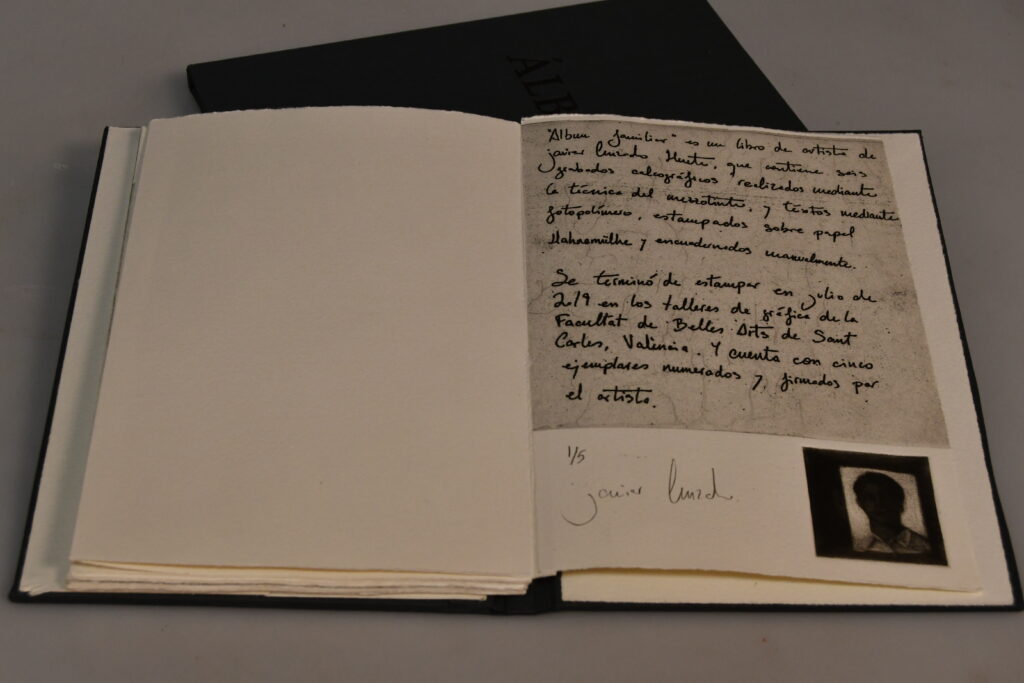 ÁLB
"Album familiar" es un libro de artista de
javier Huete, que contiene seis
grabados calcográficos realizados mediante
la técnica del mezzotinto, y textos mediante
fotopolímero, estampados sobre papel
Hahnemülhe y encuadernados manualmente.
Se terminó de estampar en julio de
2019 en los talleres de gráfica de la
Facultat de Belles Arts de Sant
Carles, València. Y cuenta con cinco
ejemplares numerados y firmados por
el artista.
1/5
javier